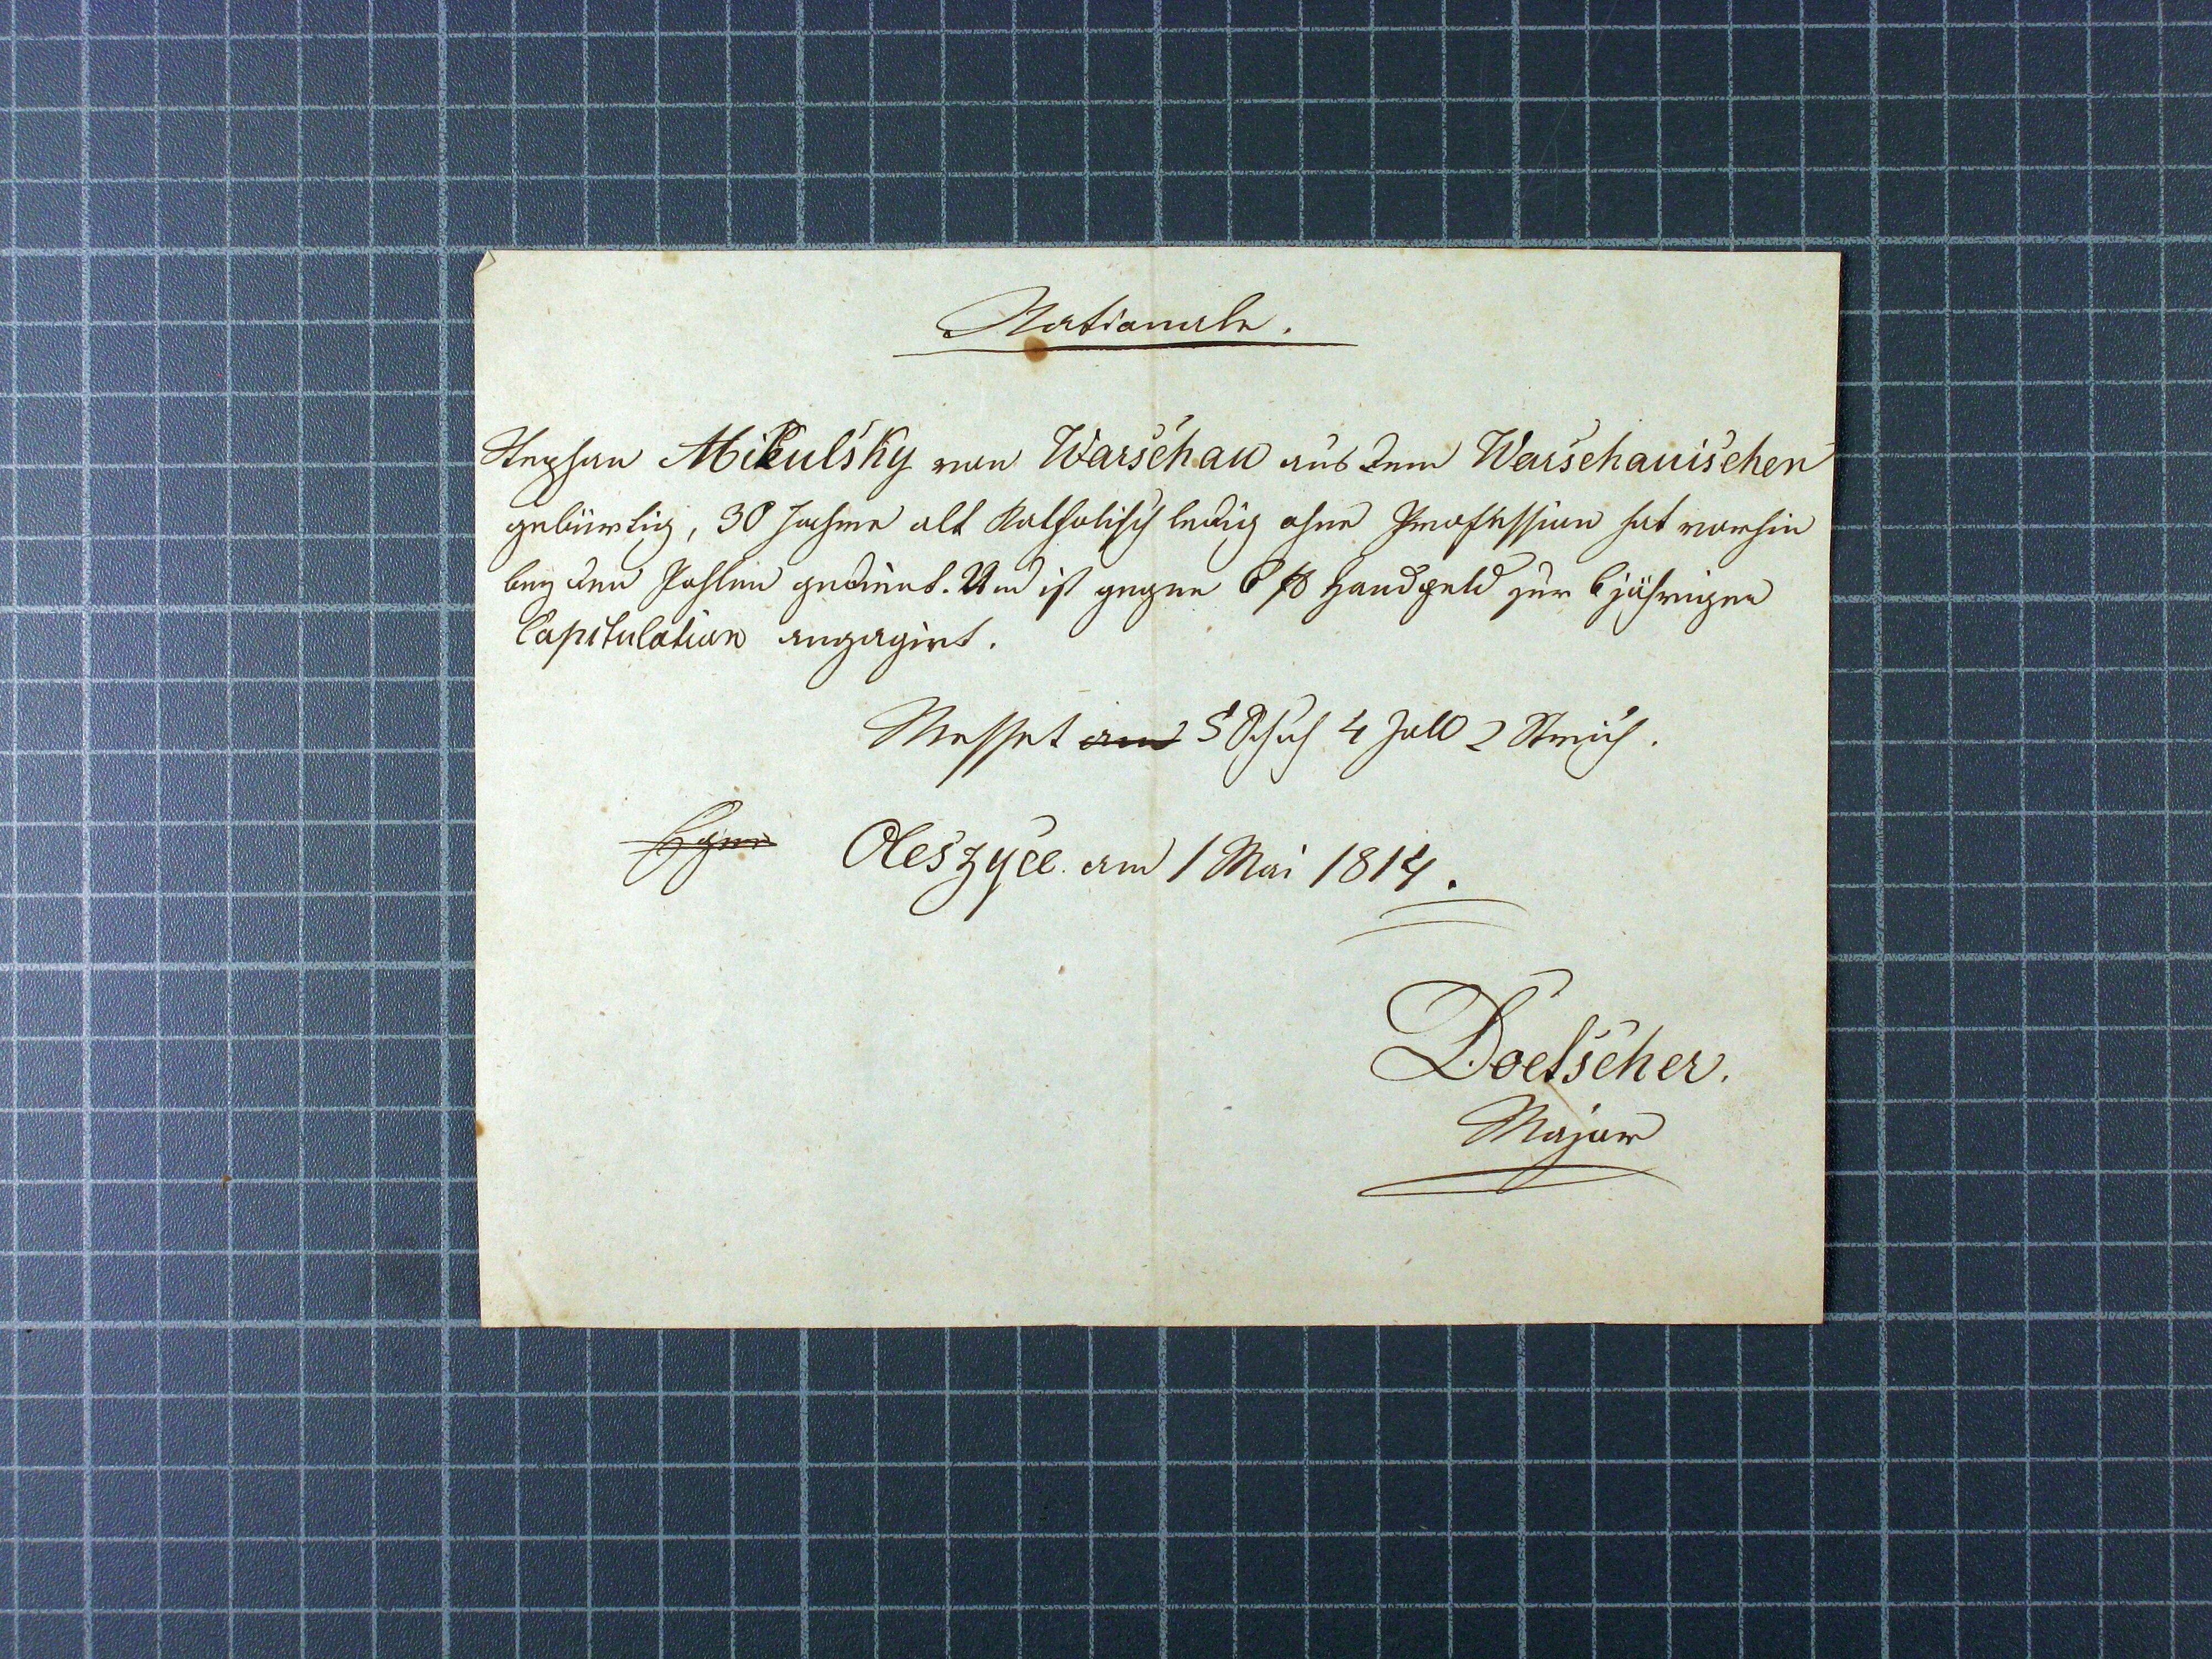 Nationale.
Stephan Mikulsky von Warschau aus dem Warschauischen
gebürtig, 30 Jahre alt Katholisch ledig ohne Profession hat vorhin
bey den Pohlen gedient. Und ist gegen 6 f Handgeld zur 6jährigen
Capitulation engagirt.
Messet 5 Schuh 4 Zoll 2 Strich.
Oleszyce am 1 Mai 1814.
Doetscher.
Major